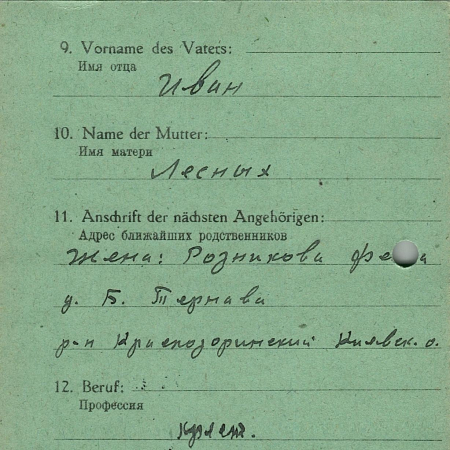 9. Vorname des Vaters:
Имя отца
Иван
10. Name der Mutter:
Имя матери
Лесных
11. Anschrift der nächsten Angehörigen:
Адрес ближайших родственников
Жена: Розникова
д. Б. Тернава
р-н Краснозоринский Киевск. о.
12. Beruf:
Профессия
Крест.